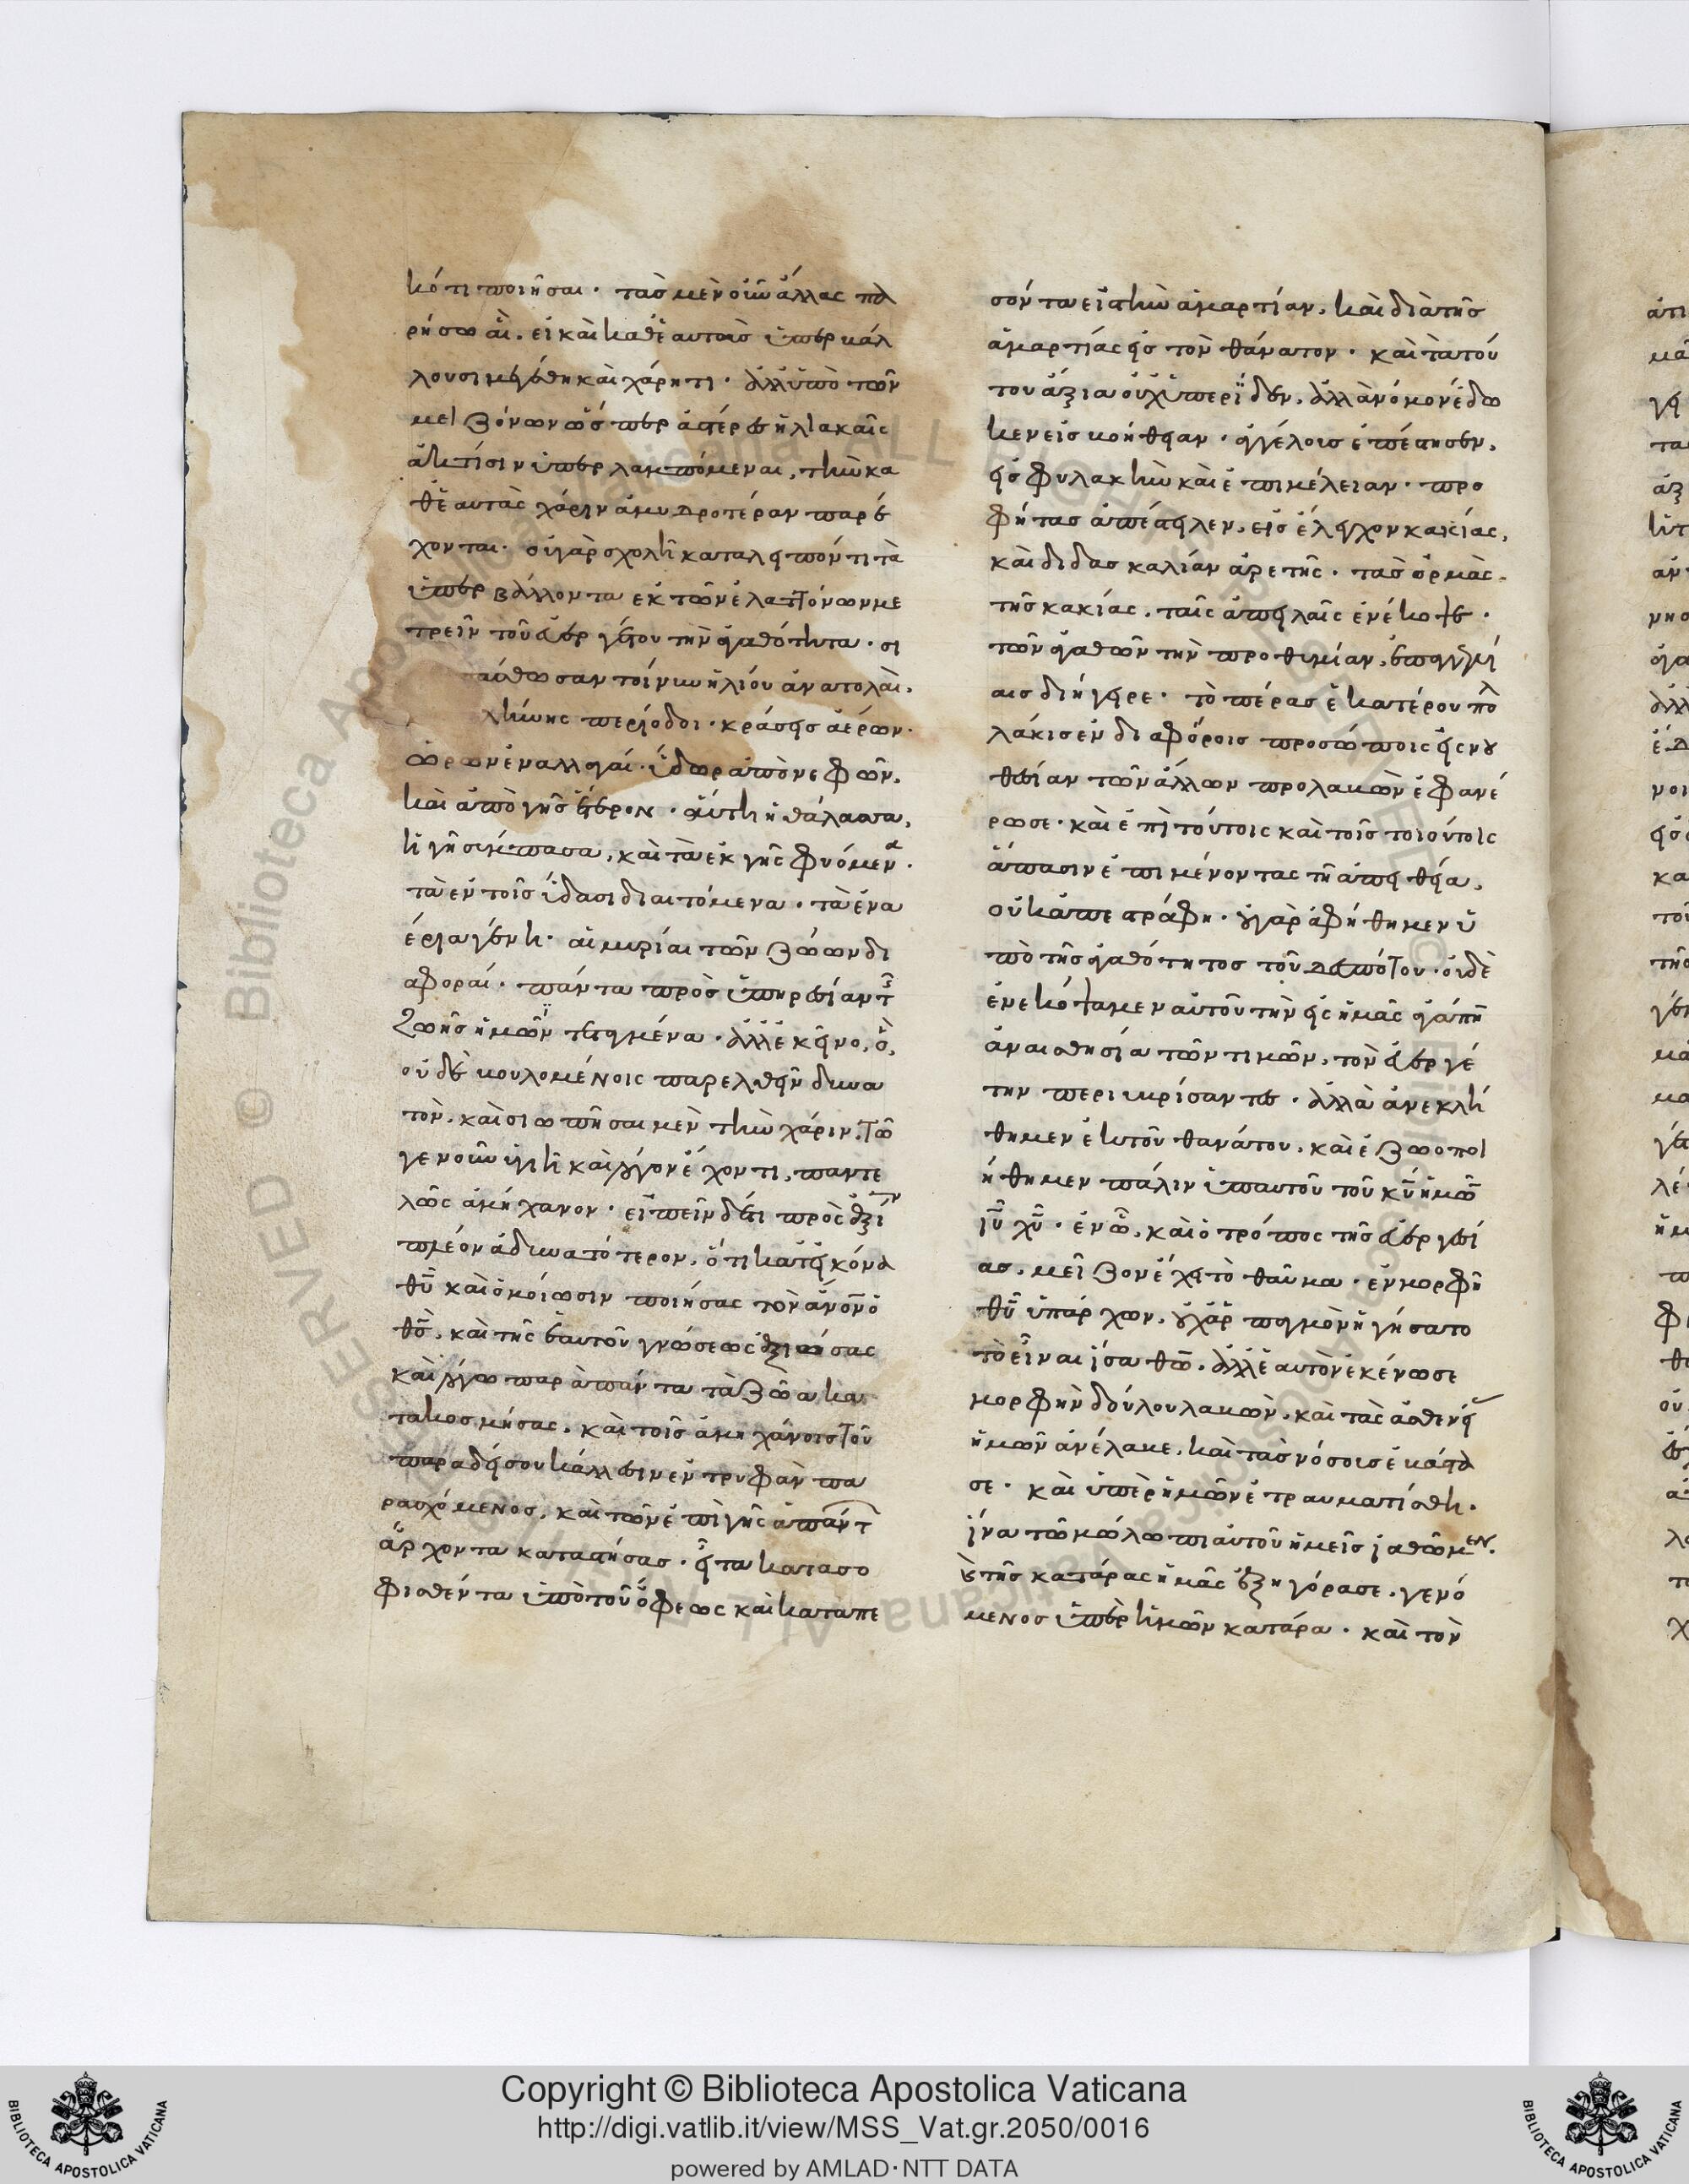 κότι ποιῆσαι· τὰσ μὲν οὖν ἄλλας πα
ρήσω αἳ, εἰ καὶ καθ' ἑαυτὰσ ὑπερβάλ
λουσι μεγέθη καὶ χάρητι· ἀλλ' ὑπὸ τῶν
μειζόνων ὥσπερ ἀστέρες ἡλιακαῖς
ἀκτίσιν ὑπερλαμπόμεναι, τὴν κα
θ' ἑαυτὰς χάριν ἀμυδροτέραν παρέ
χονται· οὐ γὰρ σχολὴ καταλειπόντι τὰ
ὑπερβάλλοντα ἐκ τῶν ἐλαττόνων με
τρεῖν τοῦ εὐεργέτου τὴν ἀγαθότητα· σι
άσθωσαν τοίνυν ἡλίου ἀνατολαὶ,
λήνης περίοδοι· κράσεις ἀέρων·
ὡρῶν ἐναλλαγαί· ὕδωρ ἀπὸ νεφῶν,
καὶ ἀπὸ γῆς ἕτερον· αὐτὴ ἡ θάλασσα,
ἡ γῆ σύμπασα, καὶ τὰ ἐκ γῆς φυόμενα·
τὰ ἐν τοῖς ὕδασι διαιτόμενα· τὰ ἐνα
έρια γένη· αἱ μυρίαι τῶν ζώων δι
αφοραί· πάντα πρὸς ὑπηρεσίαν τῆς
ζωῆς ἡμῶν τεταγμένα· ἀλλ' ἐκεῖνο, ὃ,
οὐδὲ βουλομένοις παρελθεῖν δυνα
τὸν, καὶ σιωπῆσαι μὲν τὴν χάριν, τῶ
γε νοῦν ὑγιῆ καὶ λόγον ἔχοντι, παντε
λῶς ἀμήχανον· εἰπεῖν δέ τι πρὸς ἀξίαν
πλέον ἀδυνατότερον, ὅτι κατ' εἰκόνα
θῦ καὶ ὁμοίωσιν ποιήσας τὸν ἄνον ὁ
θς, καὶ τῆς ἑαυτοῦ γνώσεως ἀξιώσας
καὶ λόγω παρὰ πάντα τὰ ζῶα κα
τακοσμήσας, καὶ τοῖς ἀμηχάνοις τοῦ
παραδείσου κάλλεσιν ἐντρυφὰν πα
ρασχόμενος, καὶ τῶν ἐπὶ γῆς ἁπάντ
ἄρχοντα καταστήσας· εἶτα κατασο
φισθέντα ὑπὸ τοῦ ὄφεως καὶ καταπε
σόντα εἰς τὴν ἁμαρτίαν, καὶ διὰ τῆς
ἁμαρτίας εἰς τὸν θάνατον· καὶ τὰ τού
του ἄξια οὐχ' ὑπερῖδεν, ἀλλὰ νόμον ἔδω
κεν εἰς βοήθειαν· ἀγγέλοις ἐπέστησεν,
εἰς φυλακὴν καὶ ἐπιμέλειαν· προ
φήτας ἀπέστειλεν, εἰς ἔλεγχον κακίας,
καὶ διδασκαλίαν ἀρετῆς· τὰς ὁρμὰς
τῆς κακίας, ταῖς ἀπειλαῖς ἐνέκοψε·
τῶν ἀγαθῶν τὴν προθυμίαν, ἐπαγγελί
αις διήγειρε· τὸ πέρας ἑκατέρου πολ
λάκις ἐν διαφόροις προσώποις εἰς νου
θεσίαν τῶν ἄλλων προλαβὼν ἐφανέ
ρωσε· καὶ ἐπὶ τούτοις καὶ τοῖς τοιούτοις
ἅπασιν ἐπιμένοντας τῆ ἀπειθεία,
οὐκ ἀπεστράφη· οὐ γὰρ ἀφήθημεν ὑ
πὸ τῆς ἀγαθότητος τοῦ δεσπότου· οὐδὲ
ἐνεκόψαμεν αὐτοῦ τὴν εἰς ἡμᾶς ἀγάπη
ἀναισθησία τῶν τιμῶν, τὸν εὐεργέ
την περιυβρίσαντες· ἀλλὰ ἀνεκλή
θημεν ἐκ τοῦ θανάτου, καὶ ἐζωοποι
ήθημεν πάλιν ὑπ' αὐτοῦ τοῦ κῦ ἡμῶν
ἰῦ χῦ· ἐν ὧ, καὶ ὁ τρόπος τῆς εὐεργεσί
ας, μεῖζον ἔχει τὸ θαῦμα· ἐν μορφῆ
θῦ ὑπάρχων, οὐχ ἁρπαγμὸν ἡγήσατο
τὸ εἶναι ἴσα θῶ, ἀλλ' ἑαυτὸν ἐκένωσε
μορφὴν δούλου λαβὼν, καὶ τὰς ἀσθενεί
ἡμῶν ἀνέλαβε, καὶ τὰς νόσους ἐβάστα
σε· καὶ ὑπὲρ ἡμῶν ἐτραυματίσθη·
ἵνα τῶ μώλωπι αὐτοῦ ἡμεῖς ἰαθῶμεν.
ἐκ τῆς κατάρας ἡμᾶς ἐξηγόρασε, γενό
μενος ὑπὲρ ἡμῶν κατάρα· καὶ τὸν
Copyright © Biblioteca Apostolica Vaticana
http://digi.vatlib.it/view/MSS_Vat.gr.2050/0016
powered by AMLAD·NTT DATA